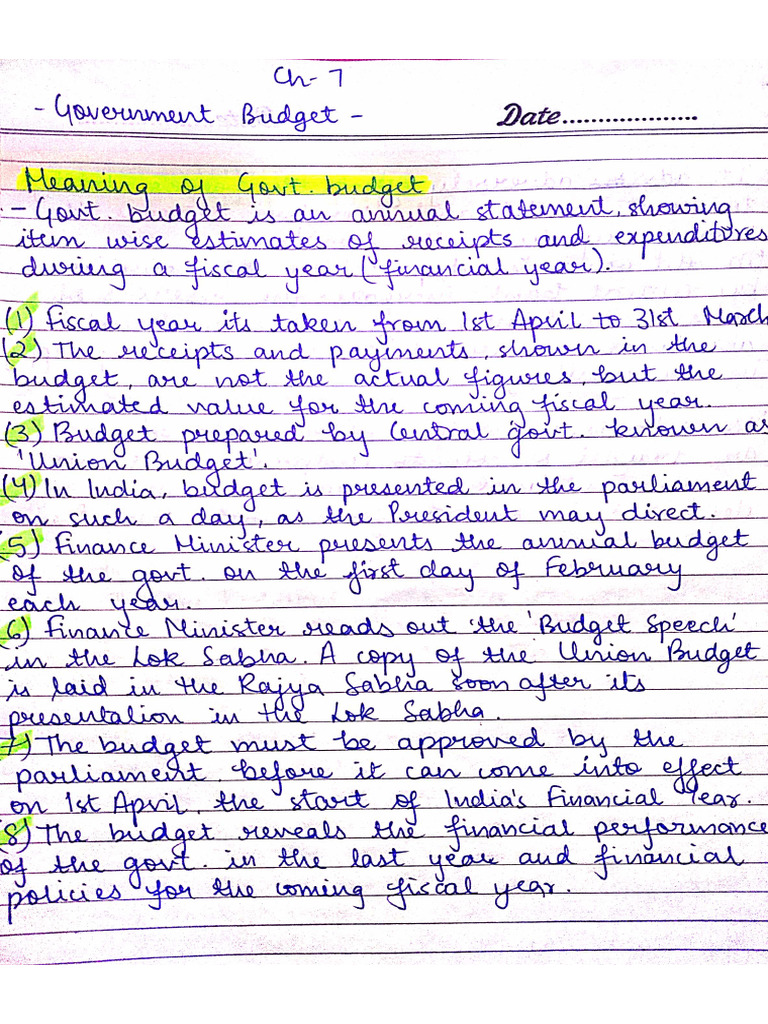 Ch- 7
- Government Budget -
Date...................
Meaning of Govt. budget
- Govt. budget is an annual statement, showing
item wise estimates of receipts and expenditures
during a fiscal year (financial year).
(1) Fiscal year its taken from 1st April to 31st March
(2) The receipts and payments, shown in the
budget, are not the actual figures, but the
estimated value for the coming fiscal year.
(3) Budget prepared by Central govt. known as
'Union Budget'.
(4) In India, budget is presented in the parliament
on such a day, as the President may direct.
(5) Finance Minister presents the annual budget
of the govt. on the first day of February
each year.
(6) Finance Minister reads out the 'Budget Speech'
in the Lok Sabha. A copy of the Union Budget
is laid in the Rajya Sabha soon after its
presentation in the Lok Sabha.
7) The budget must be approved by the
parliament, before it can come into effect
on 1st April, the start of India's Financial Year.
(8) The budget reveals the financial performance
of the govt. in the last year and financial
policies for the coming fiscal year.